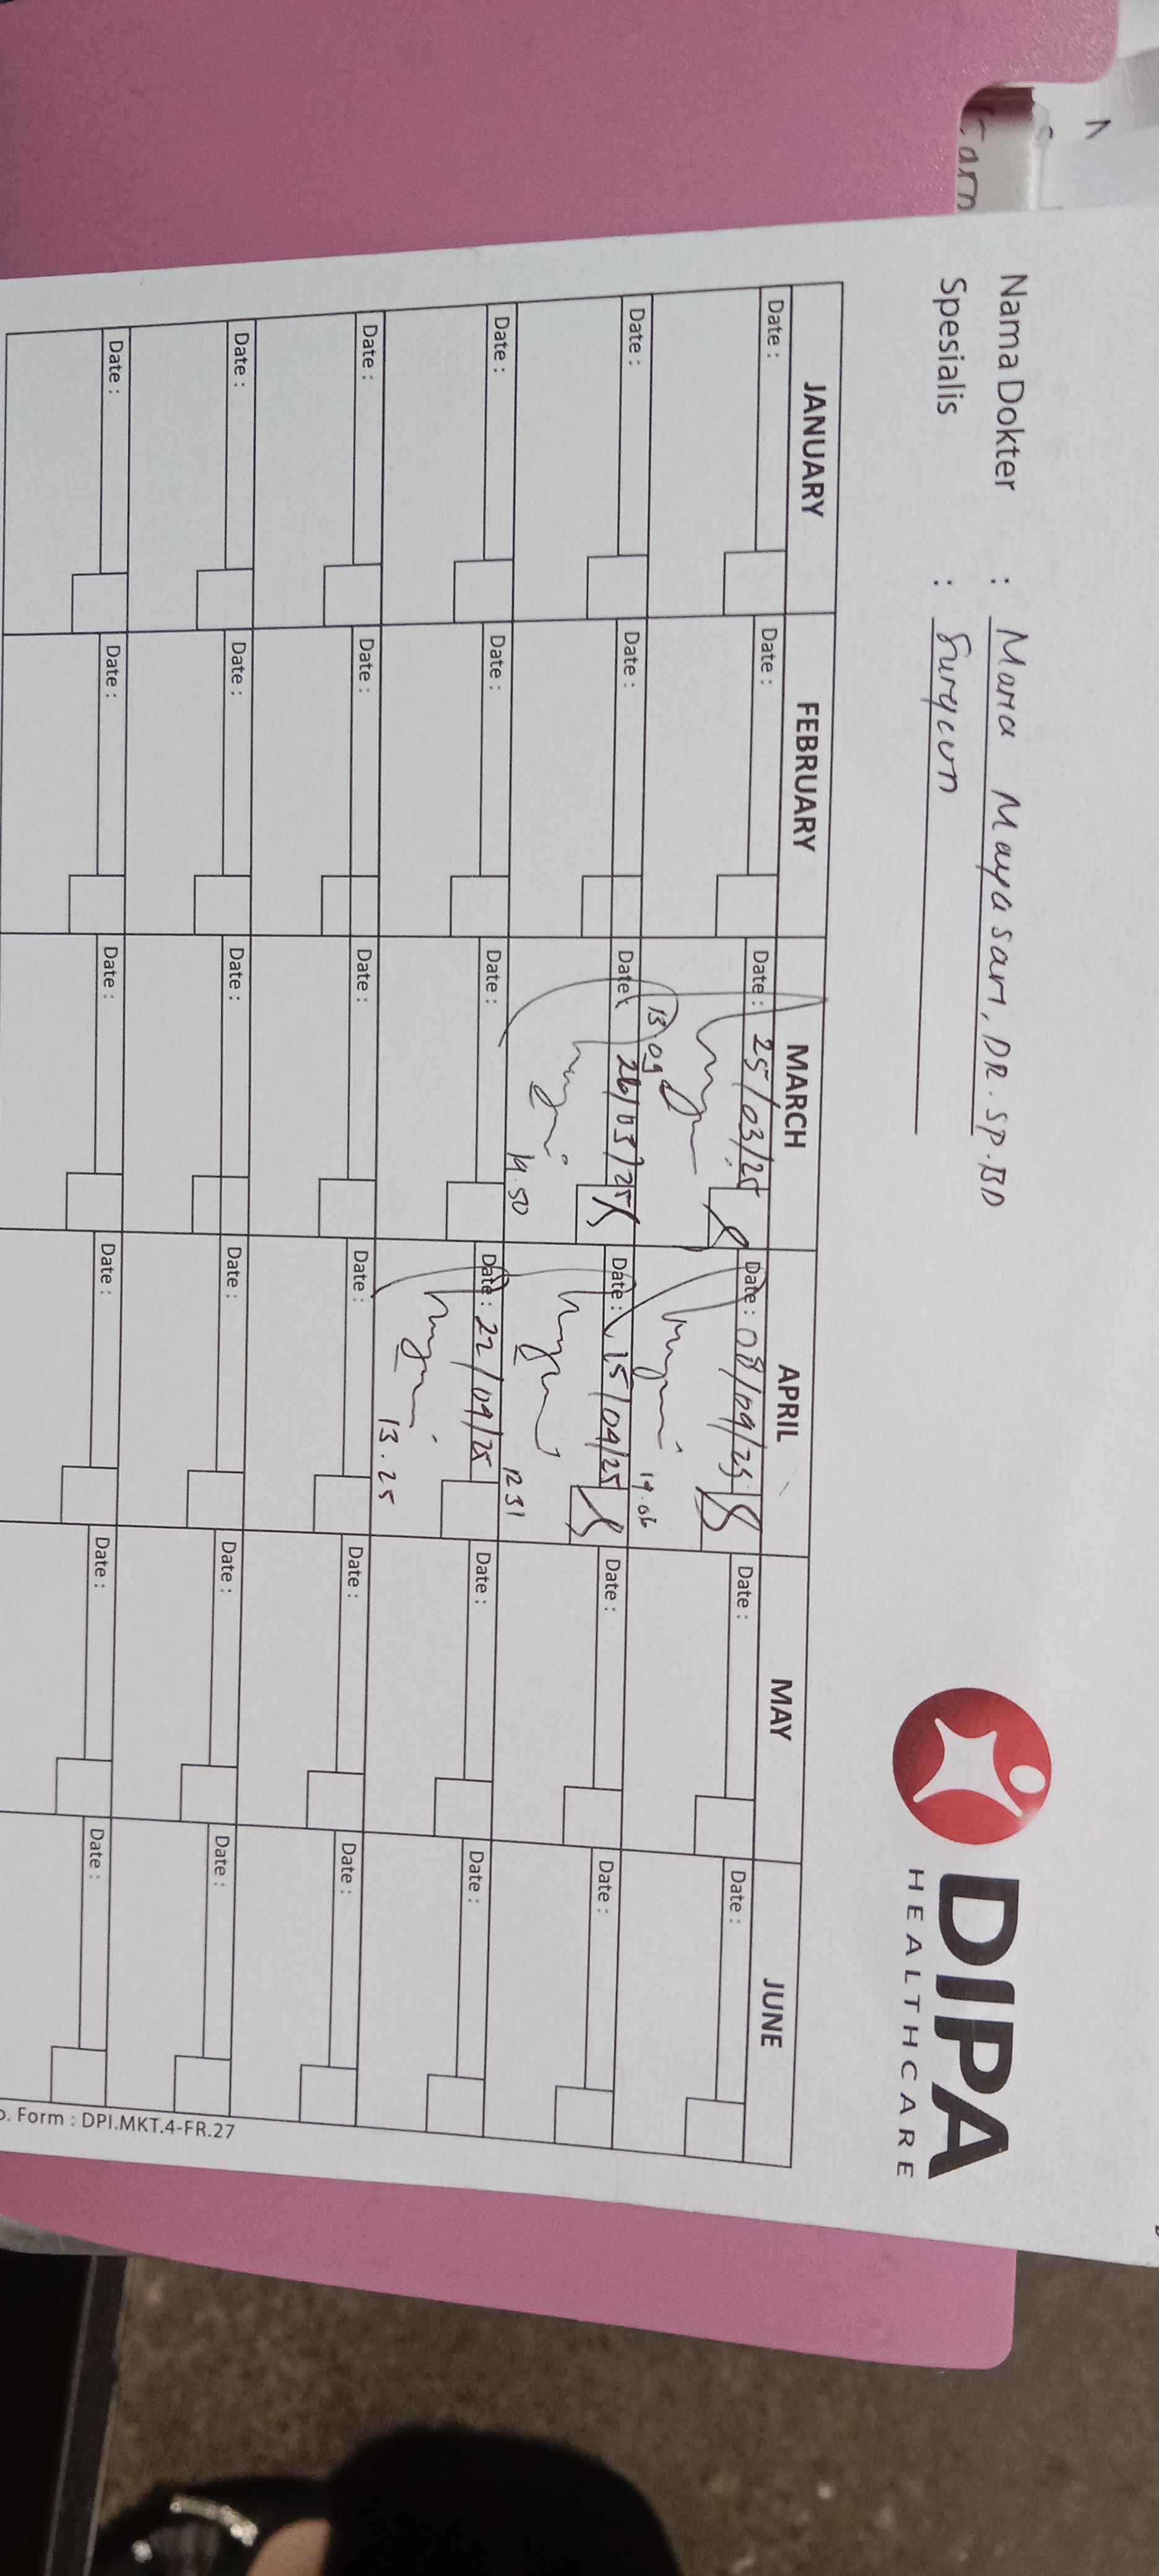 Nama Dokter : Maria Mayasari, DR. SP. BD
Spesialis : Surgeon
DIPA
HEALTHCARE
JANUARY FEBRUARY MARCH APRIL MAY JUNE
Date : Date : Date : 25/03/25 Date : 08/04/25 Date : Date :
13 09 14.06
Date : Date : Date : 26/03/25 Date : 15/04/25 Date : Date :
14.50 12 31
Date : Date : Date : Date : 22/04/25 Date : Date :
13.25
Date : Date : Date : Date : Date : Date :
Date : Date : Date : Date : Date : Date :
Date : Date : Date : Date : Date : Date :
. Form : DPI.MKT.4-FR.27